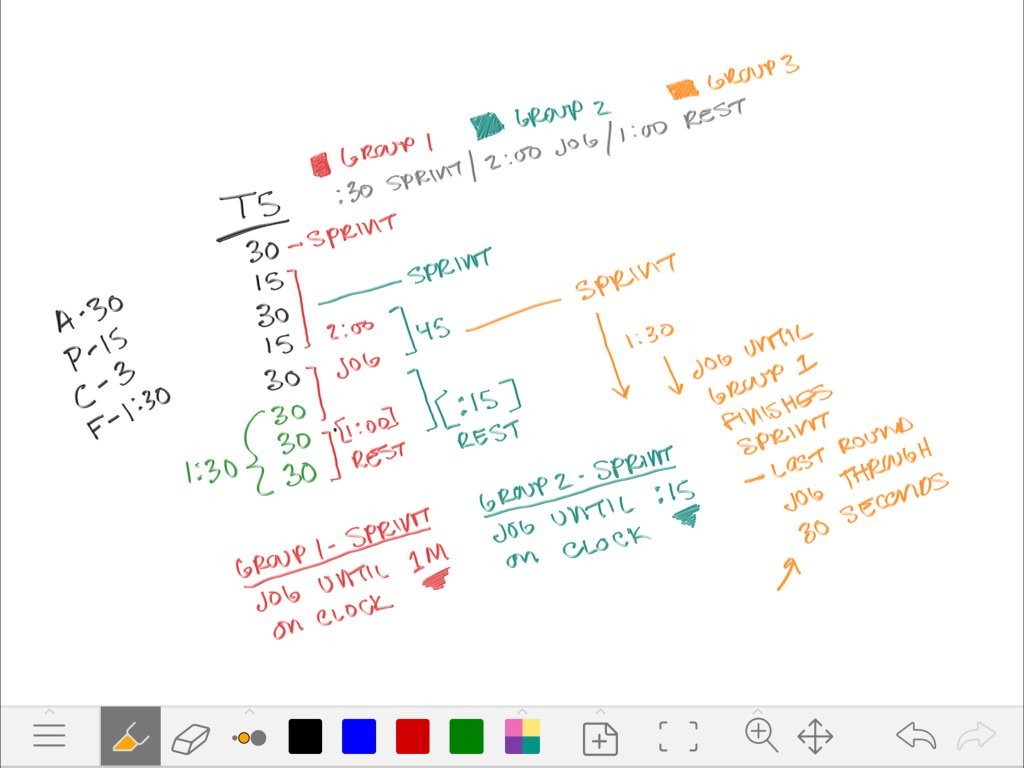 GROUP 1
GROUP 2
GROUP 3
:30 SPRINT/2:00 JOG/1:00 REST
T5
30 - SPRINT
15
30
15
30
30
30
30
1:30
A-30
P-15
C-3
F-1:30
2:00
JOG
[1:00]
REST
SPRINT
45
[:15]
REST
SPRINT
1:30
JOG UNTIL
GROUP 1
FINISHES
SPRINT
- LAST ROUND
JOG THROUGH
30 SECONDS
GROUP 1 - SPRINT
JOG UNTIL 1M
on CLOCK
GROUP 2 - SPRINT
JOG UNTIL :15
on CLOCK